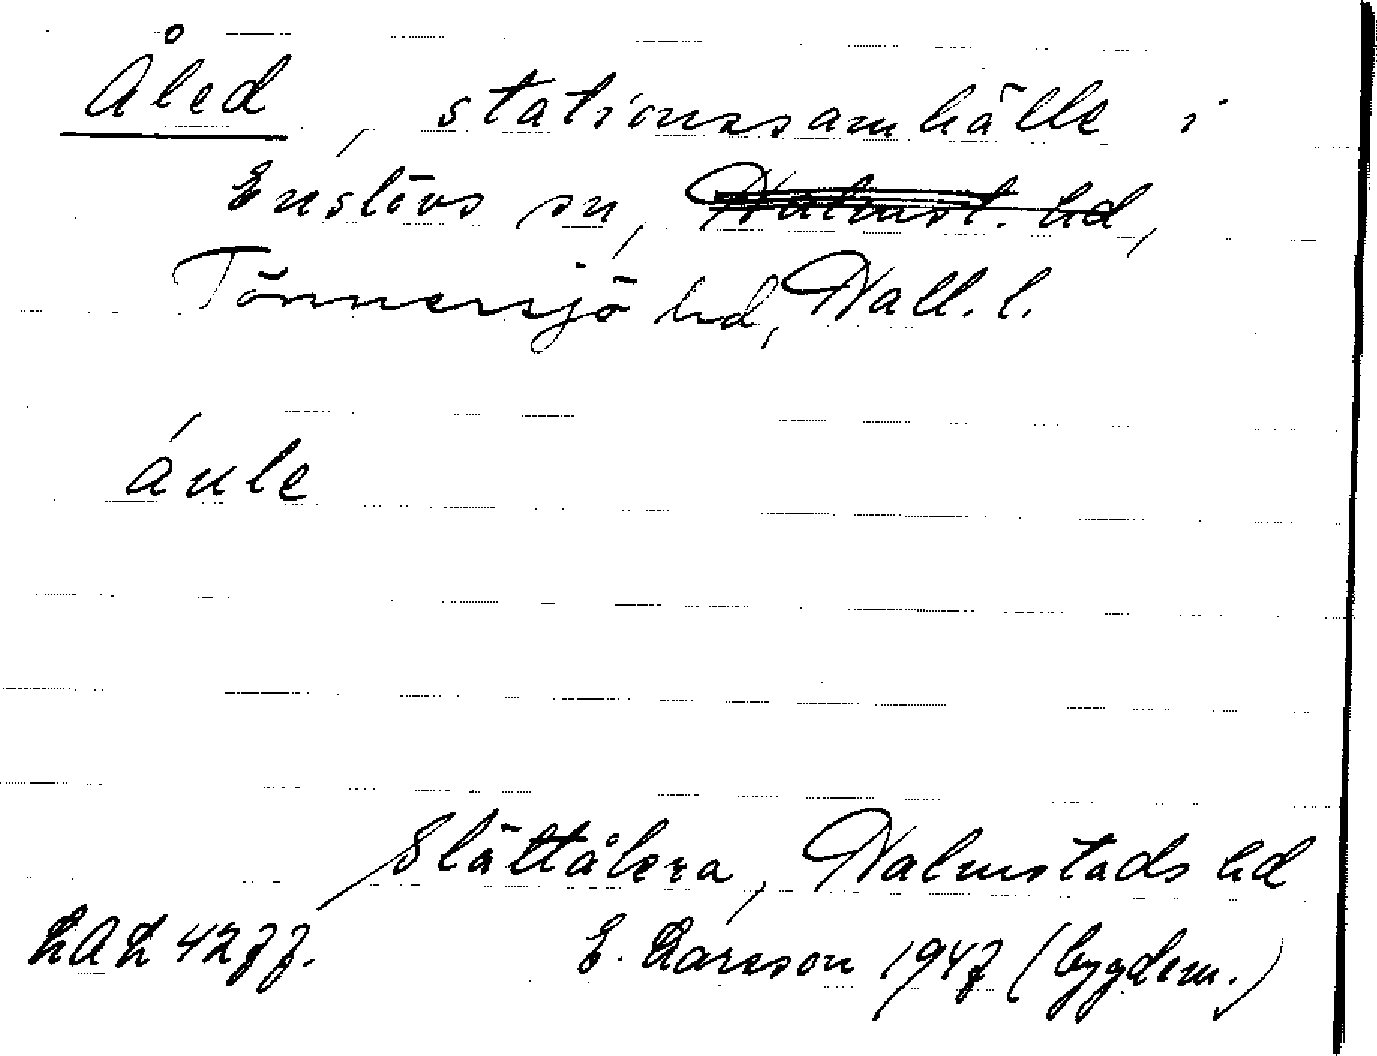 Åled, stationssamhälle i
Enslövs sn, Halmst. hd,
Tönnersjö hd, Hall. l.
áule
Slättåkra, Halmstads hd
LAL 4277. E. Larsson 1947 (bygdem.)